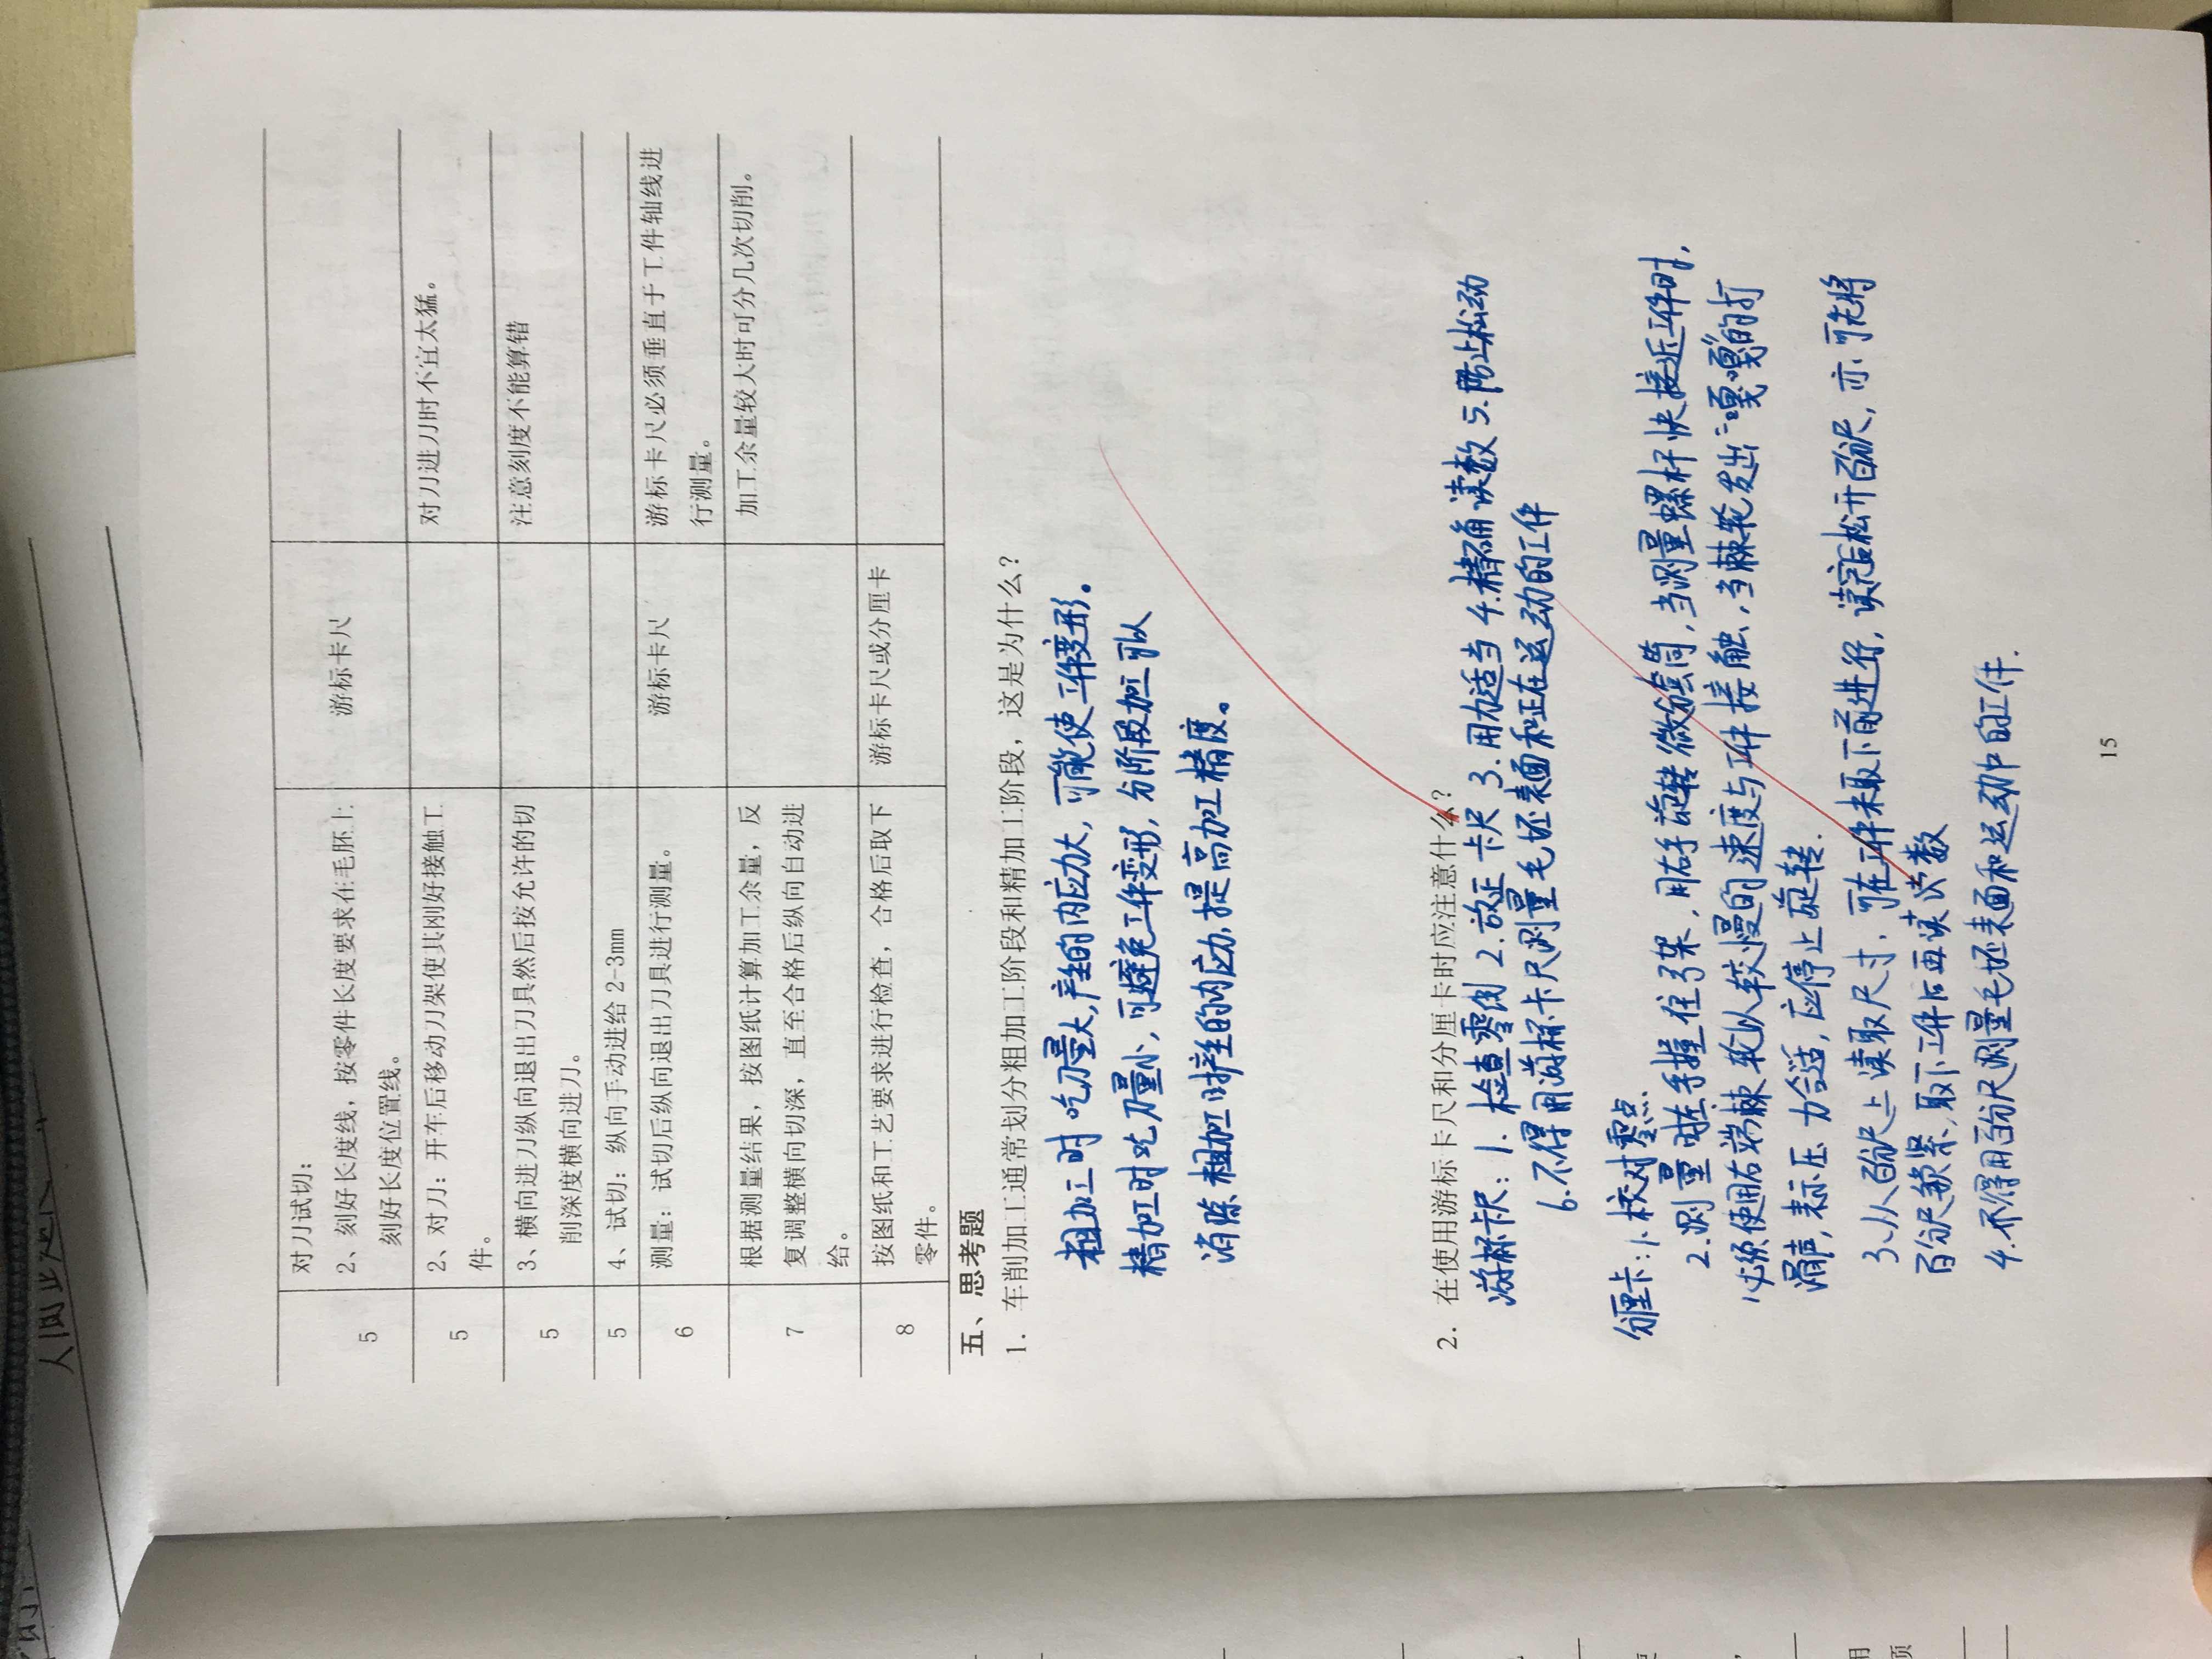 5
对刀试切：
2、刻好长度线，按零件长度要求在毛胚上
刻好长度位置线。
游标卡尺
5
2、对刀：开车后移动刀架使其刚好接触工
件。
对刀进刀时不宜太猛。
5
3、横向进刀纵向退出刀具然后按允许的切
削深度横向进刀。
注意刻度不能算错
5
4、试切：纵向手动进给 2-3mm
6
测量：试切后纵向退出刀具进行测量。
游标卡尺
游标卡尺必须垂直于工件轴线进
行测量。
7
根据测量结果，按图纸计算加工余量，反
复调整横向切深，直至合格后纵向自动进
给。
加工余量较大时可分几次切削。
8
按图纸和工艺要求进行检查，合格后取下
零件。
游标卡尺或分厘卡
五、思考题
1．车削加工通常划分粗加工阶段和精加工阶段，这是为什么？
粗加工时吃刀量大,产生的内应力大,可能使工件变形。
精加工时吃刀量小,可避免工件变形,分阶段加工可以
消除粗加工时产生的内应力,提高加工精度。
2．在使用游标卡尺和分厘卡时应注意什么？
游标卡尺：1. 检查零线 2.放正卡尺 3.用力适当 4.精确读数 5.防止松动
6.不得用游标卡尺测量毛坯表面和正在运动的工件
分厘卡：1.校对零点
2.测量时左手握住弓架,用右手旋转微分套筒,当测量螺杆快接近工件时,
必须使用右端棘轮以较慢的速度与工件接触,当棘轮发出“嘎嘎”的打
滑声,表示压力合适,应停止旋转.
3、从百分尺上读取尺寸,可在工件未取下前进行,读完后松开百分尺,亦可先将
百分尺锁紧,取下工件后再读数
4.不得用百分尺测量毛坯表面和运动中的工件.
15